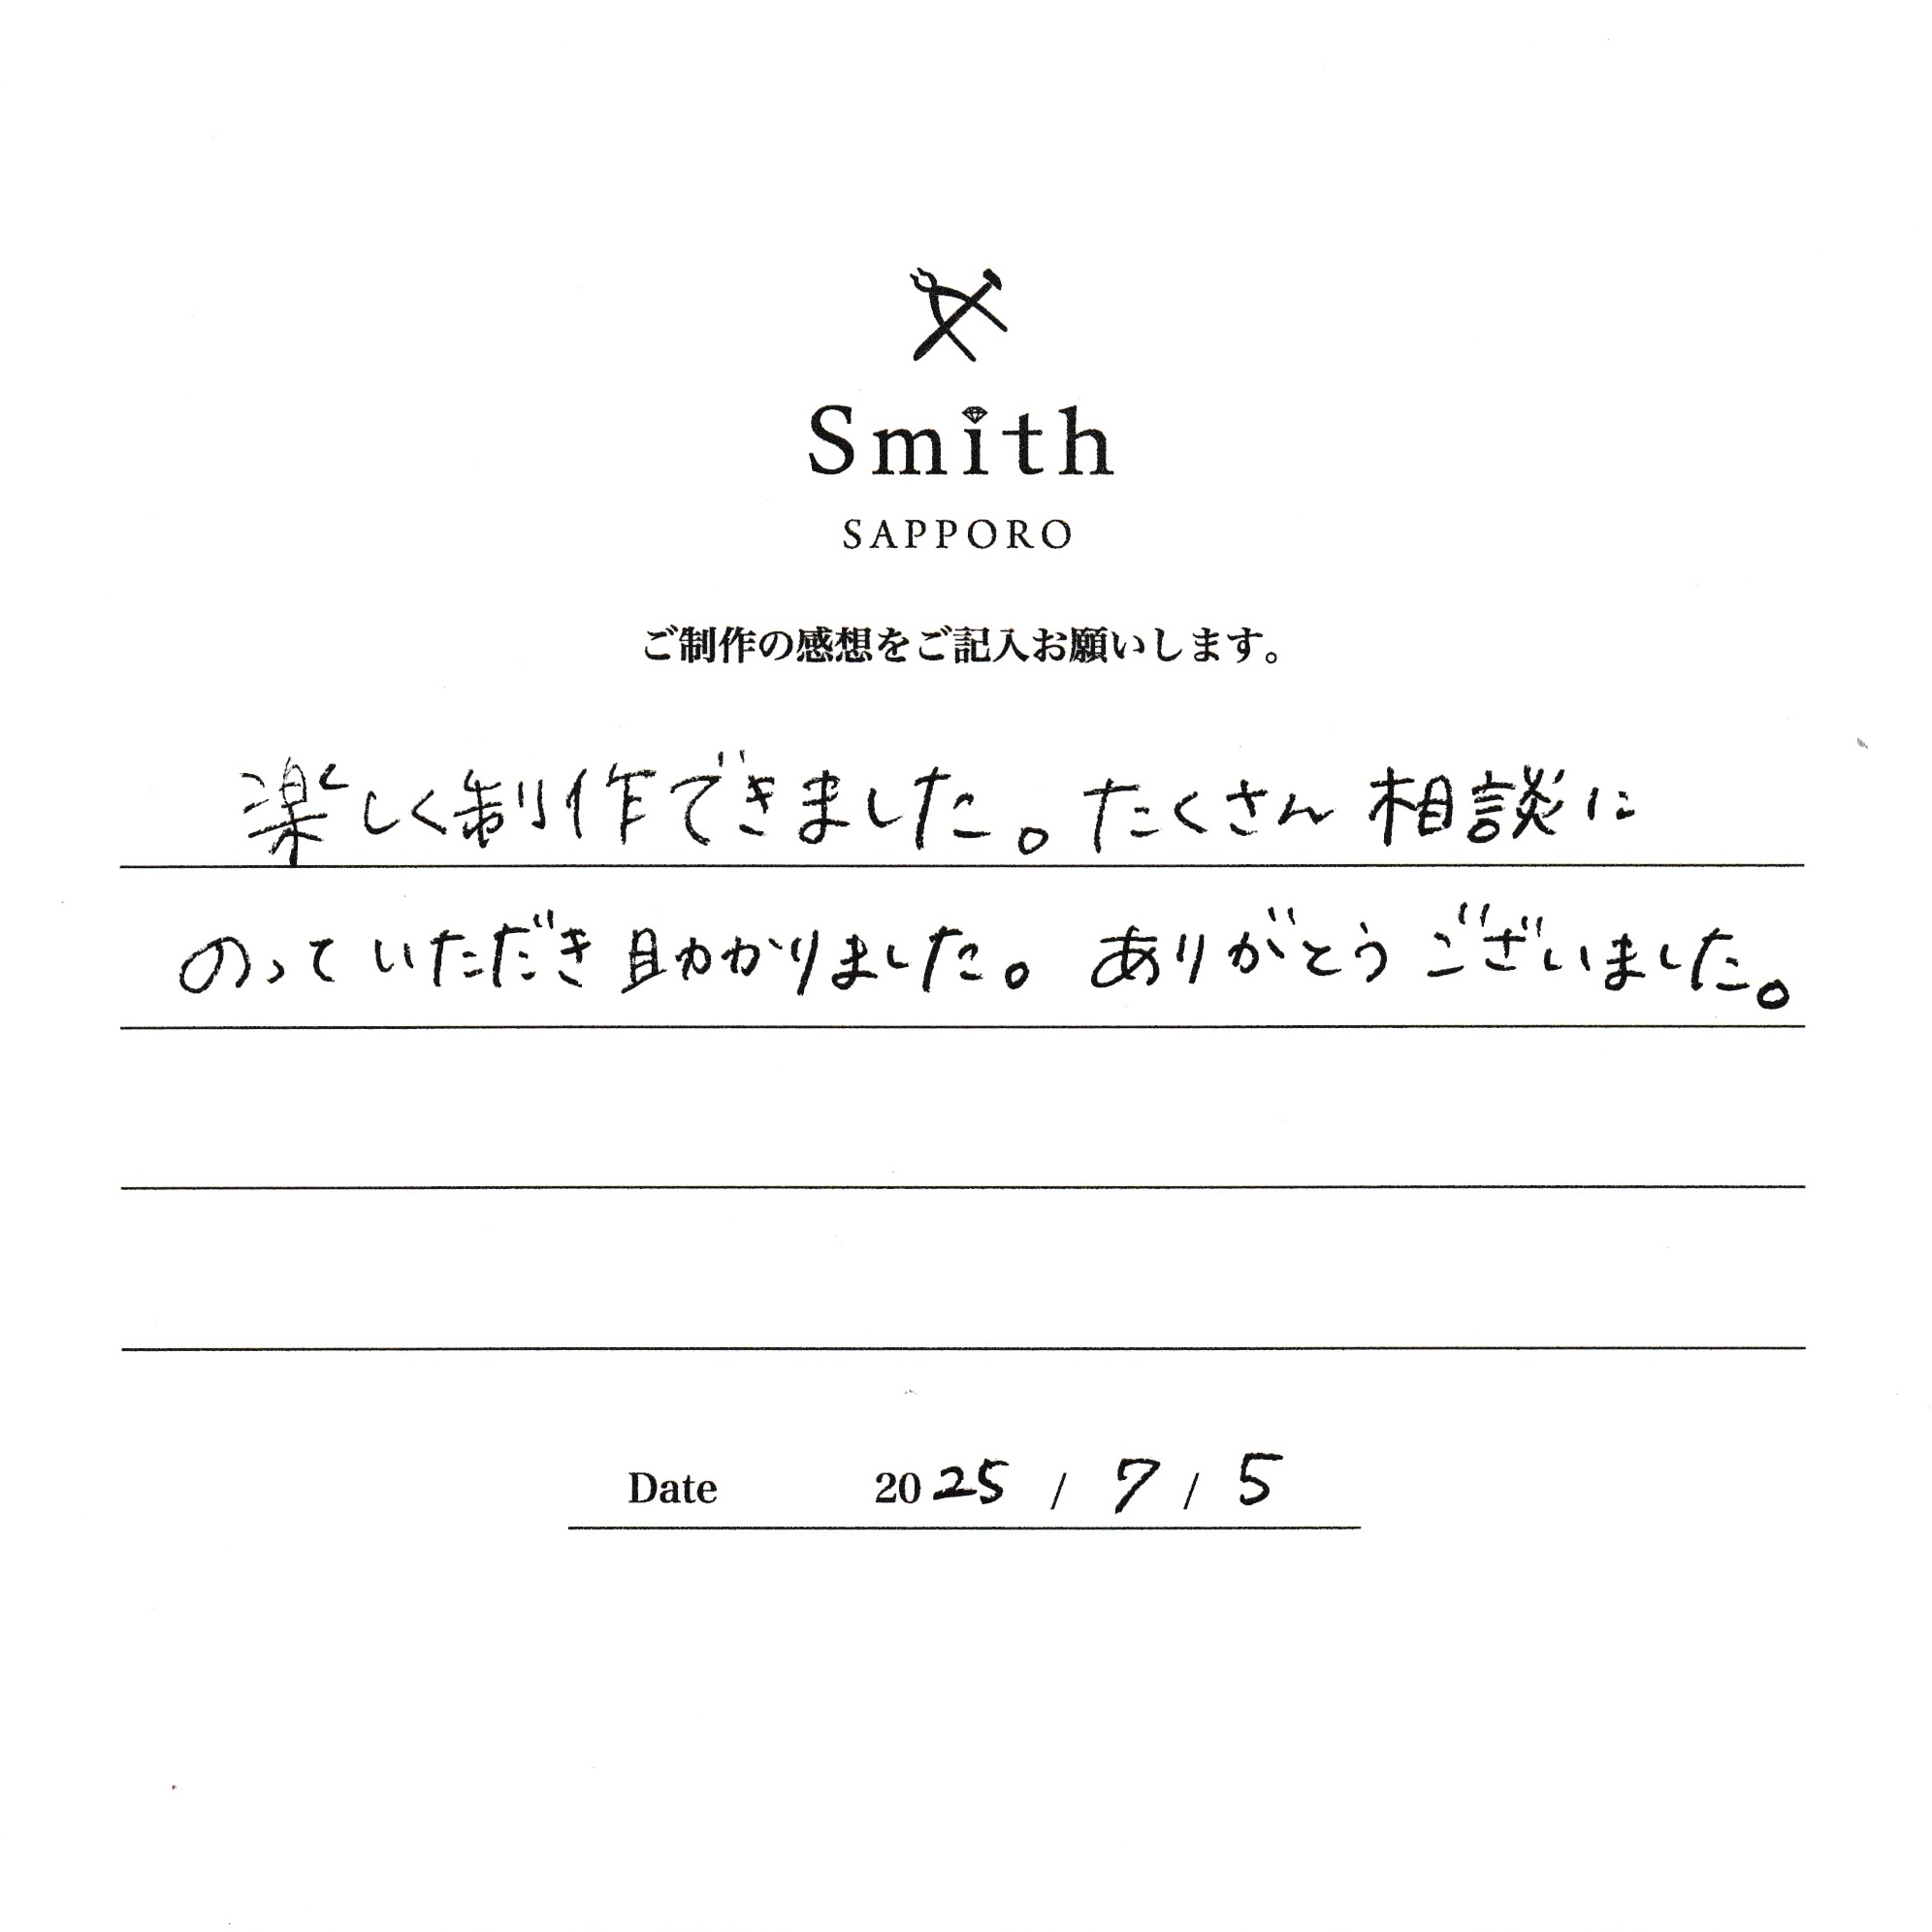 Smith
SAPPORO
ご制作の感想をご記入お願いします。
楽しく制作できました。たくさん相談に
のっていただき助かりました。ありがとうございました。
Date 2025 / 7 / 5